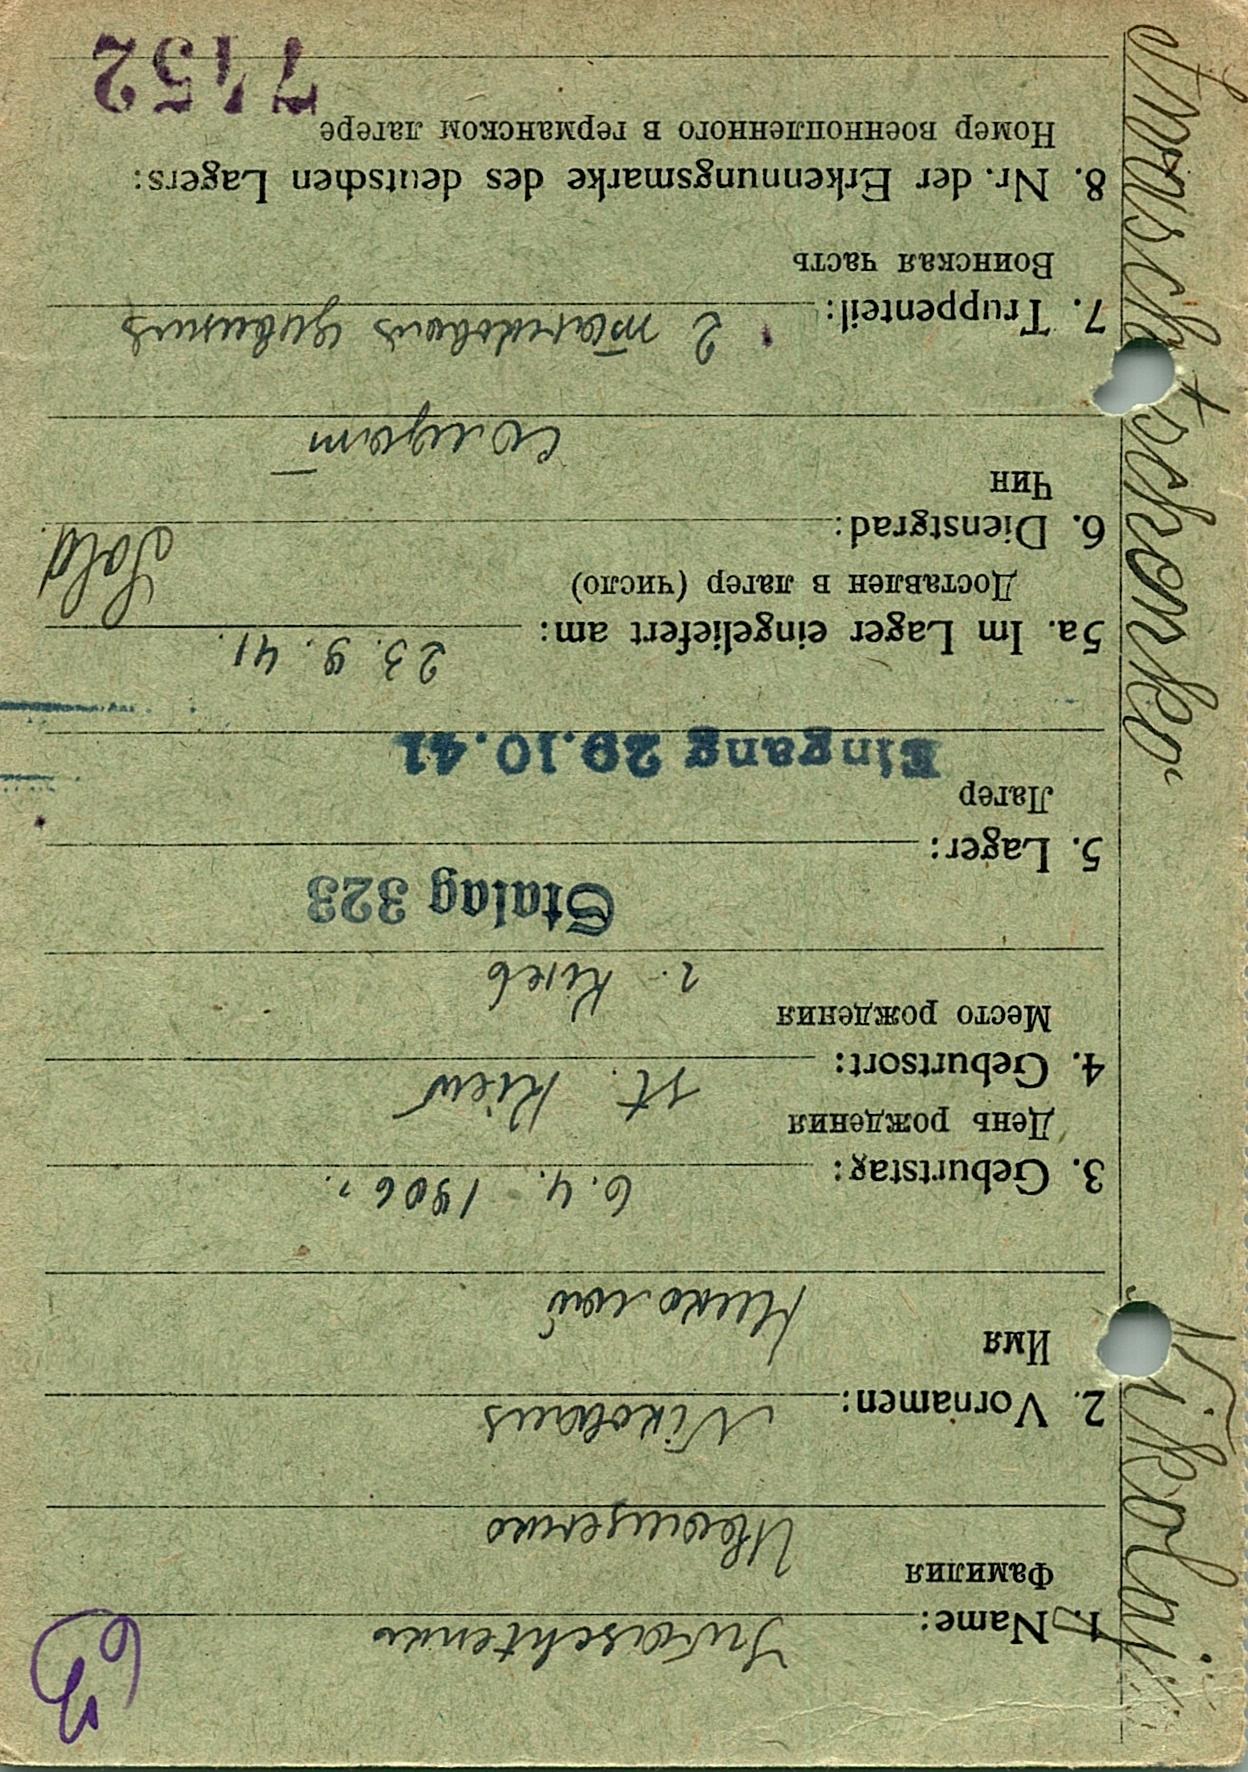 1. Name: Iwaschtenko
Фамилия
Иващенко
2. Vornamen: Nikolaus
Имя
Николай
3. Geburtstag: 6. 4. 1906 г.
День рождения
4. Geburtsort: st. Kiew
Место рождения
г. Киев
Stalag 323
5. Lager:
Лагерь
Eingang 29.10.41
5a. Im Lager eingeliefert am: 23. 9. 41.
Доставлен в лагерь (число)
Sold.
6. Dienstgrad:
Чин
солдат
7. Truppenteil: 2
Воинская часть
8. Nr. der Erkennungsmarke des deutschen Lagers:
Номер военнопленного в германском лагере
7152
Iwaschtschenko
Nikolaj